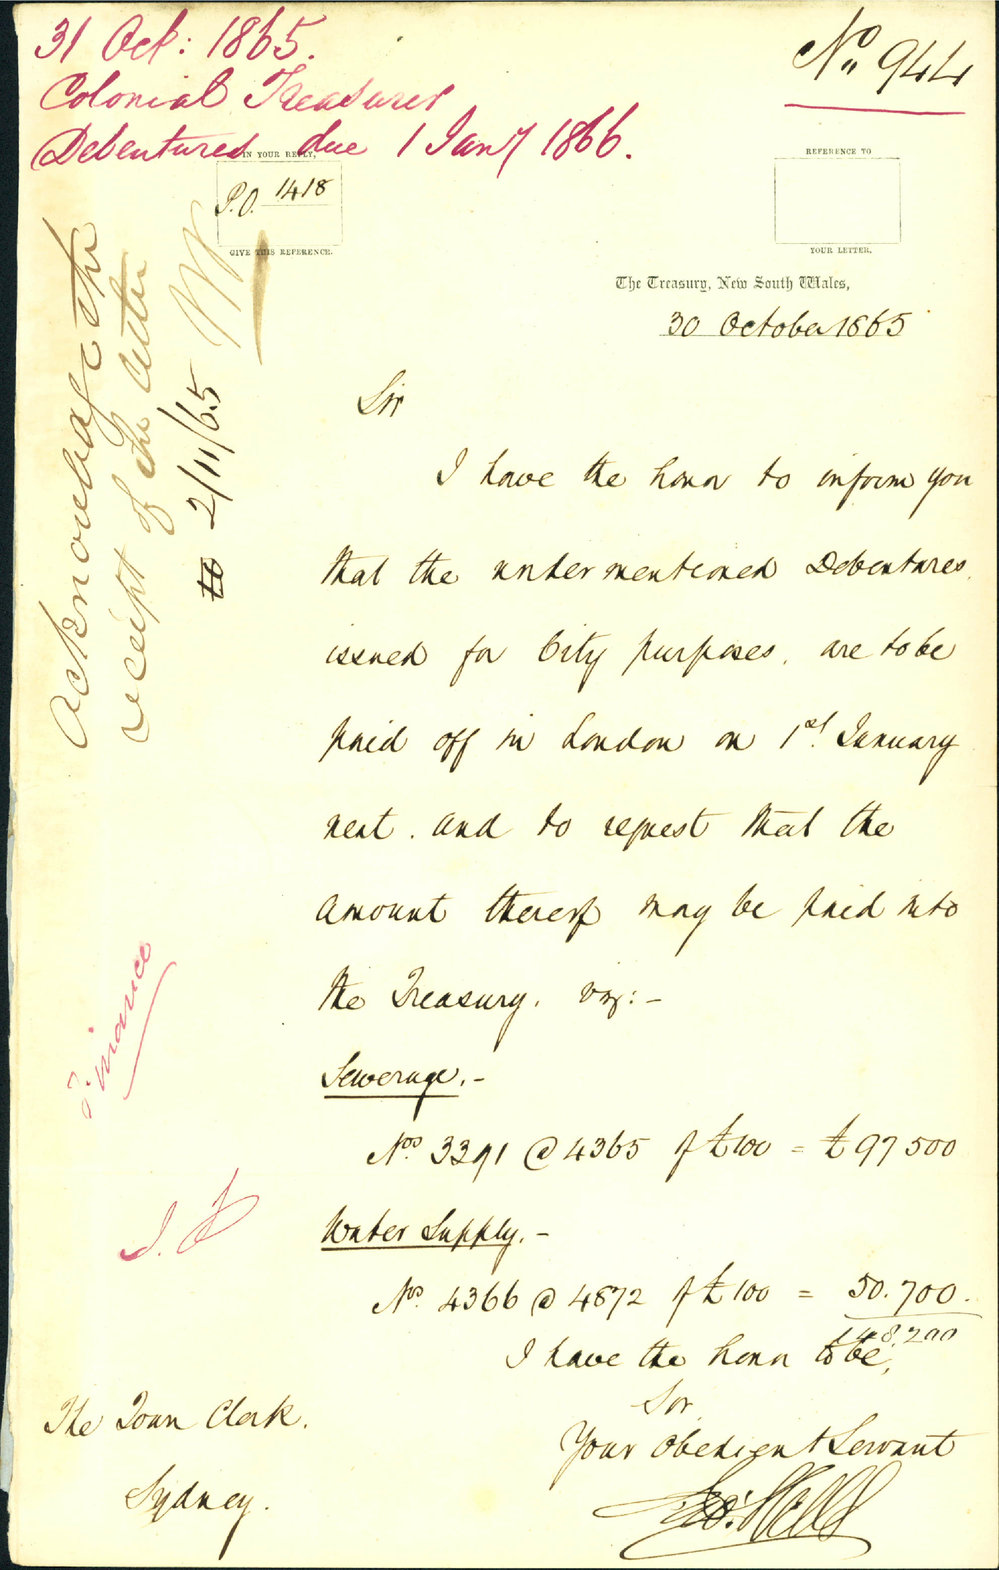 31 Oct: 1865.
Colonial Treasurer
Debentures due 1 Jany 1866.
No. 944
IN YOUR REPLY,
P.O. 1418
GIVE THIS REFERENCE.
REFERENCE TO
YOUR LETTER.
The Treasury, New South Wales,
30 October 1865
Acknowledge the
receipt of the letter
2/11/65
Sir
I have the honor to inform you
that the undermentioned Debentures
issued for City purposes, are to be
paid off in London on 1st. January
next. and to request that the
amount thereof may be paid into
the Treasury. viz:-
Sewerage.-
Nos 3391 @ 4365 of £100 = £97500
Water Supply.-
Nos. 4366 @ 4872 of £100 = 50.700.
148200
I have the honor to be,
Sir
Your Obedient Servant
The Town Clerk.
Sydney.
Finance